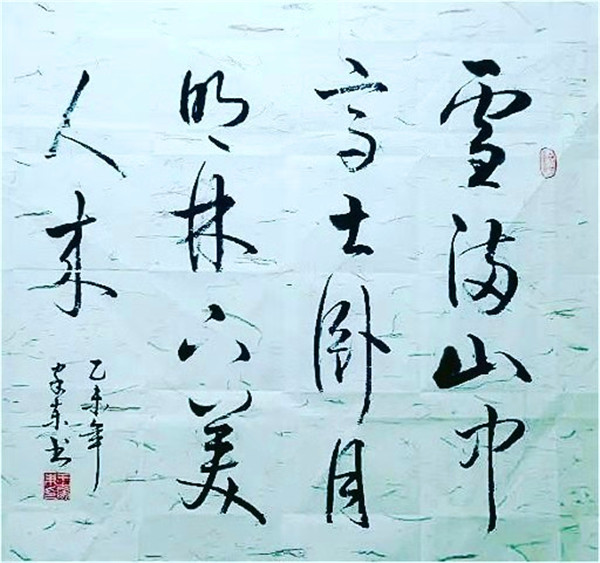 雪满山中
高士卧月
明林下美
人来
乙未年
家东书